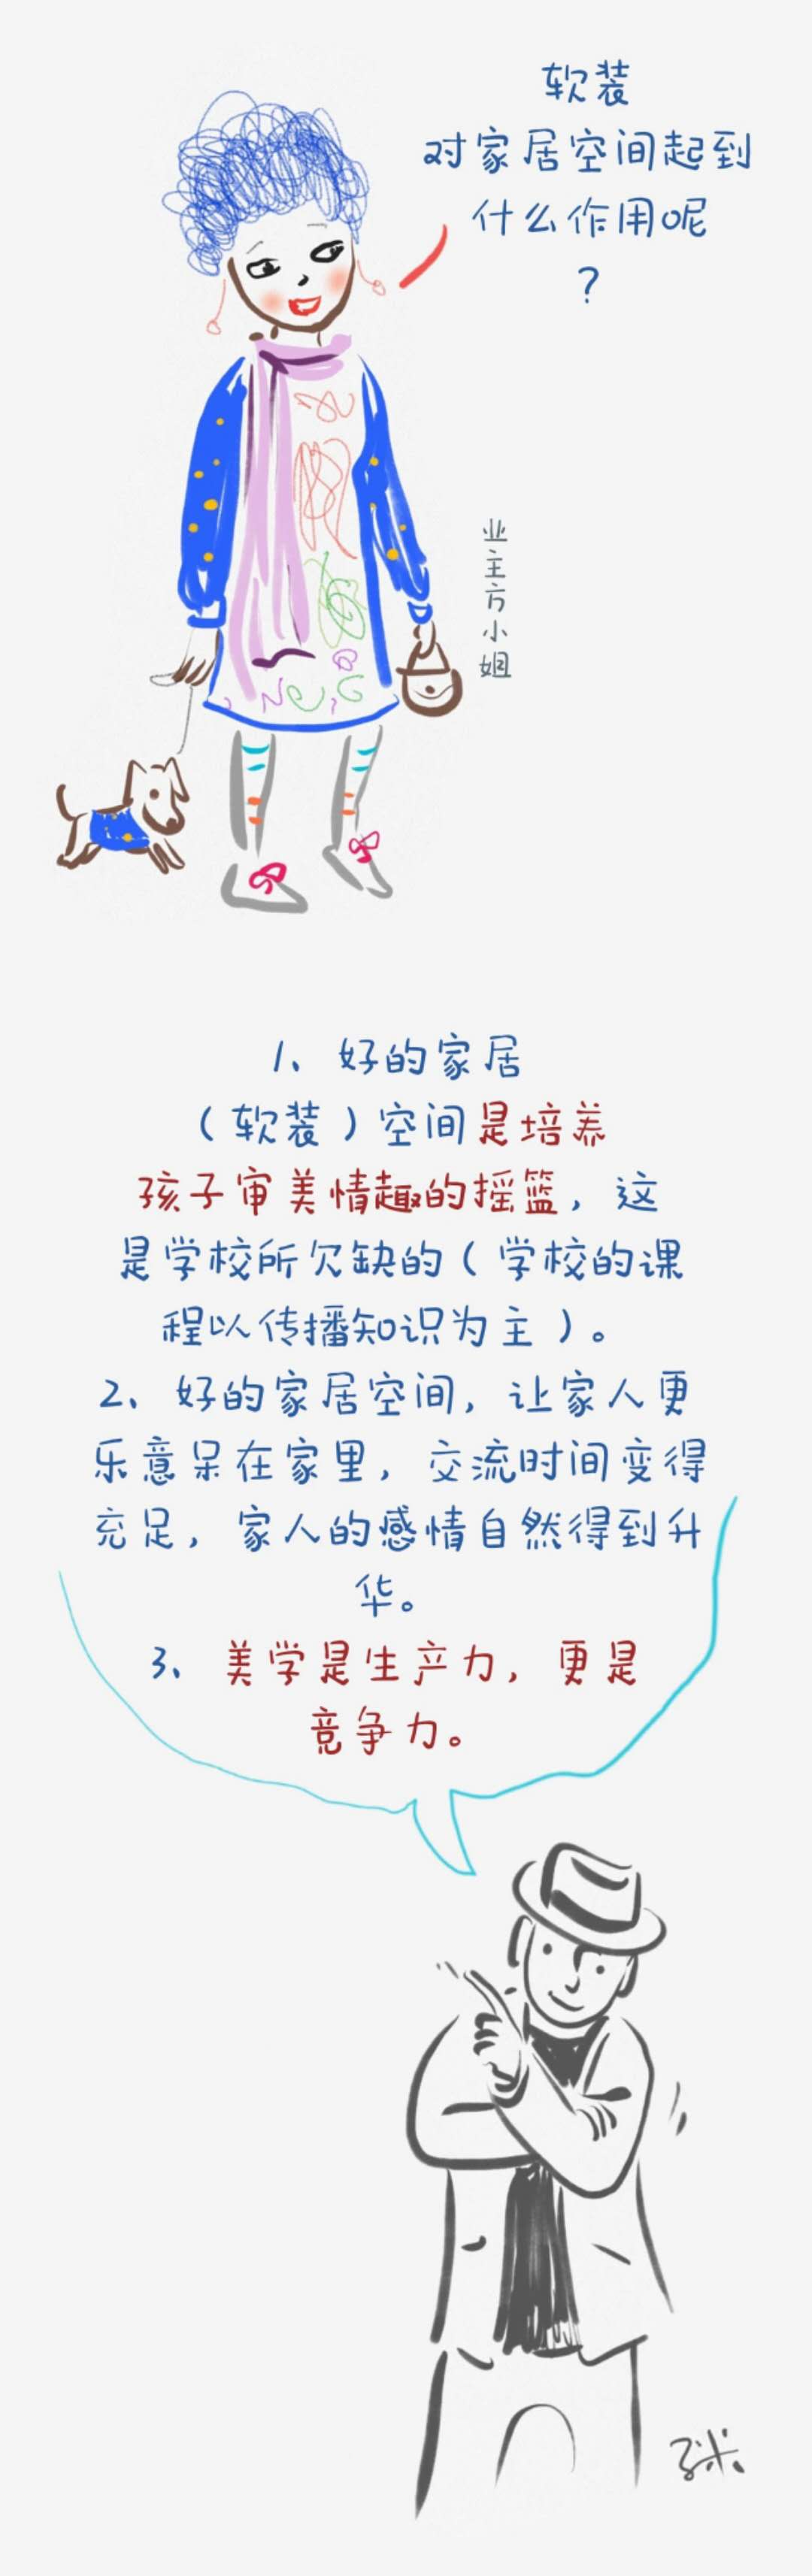 软装
对家居空间起到
什么作用呢
?
业主方小姐
1、好的家居
(软装)空间是培养
孩子审美情趣的摇篮,这
是学校所欠缺的(学校的课
程以传播知识为主)。
2、好的家居空间,让家人更
乐意呆在家里,交流时间变得
充足,家人的感情自然得到升
华。
3、美学是生产力,更是
竞争力。